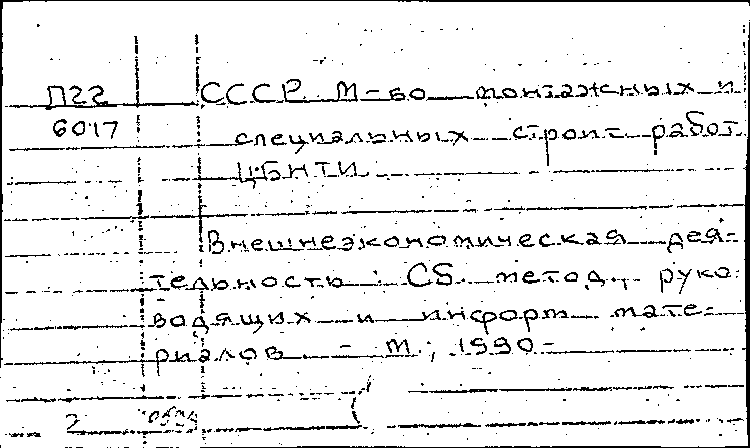 П22 СССР. М-во монтажных и
6017 специальных строит. работ.
ЦБНТИ.
Внешнеэкономическая дея-
тельность : Сб. метод., руко-
водящих и информ. мате-
риалов. - М., 1990-
2